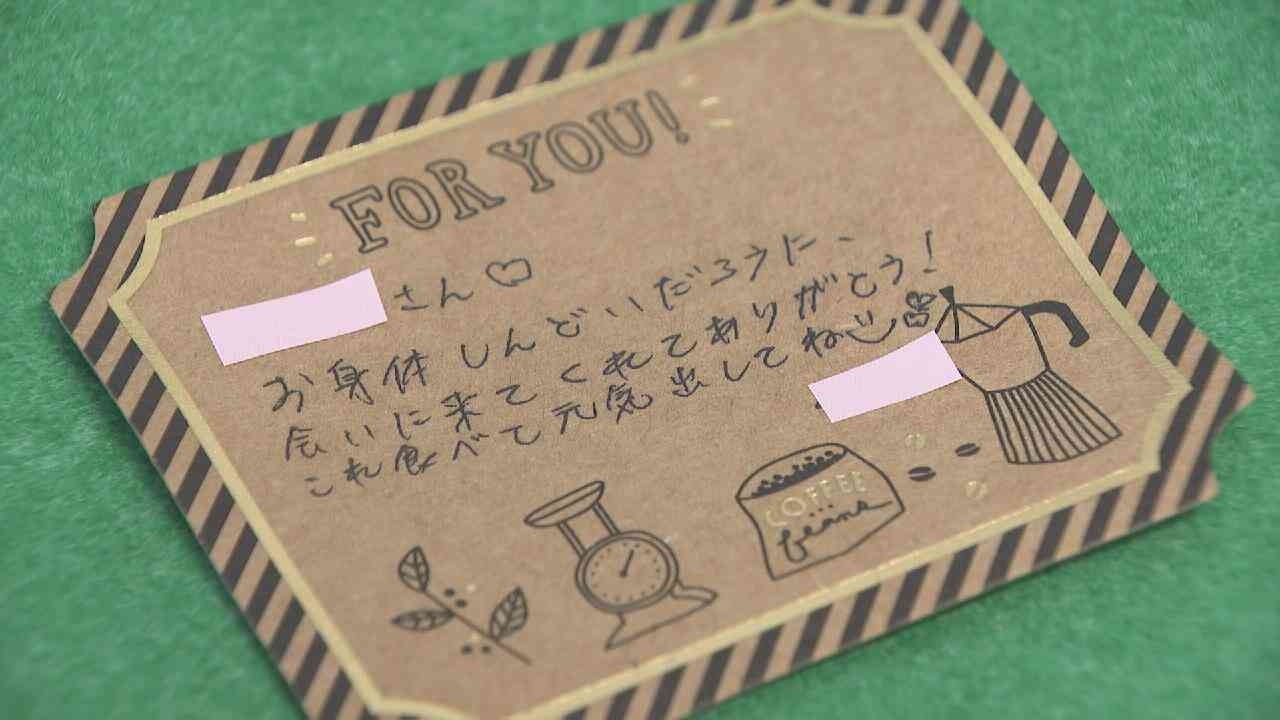 FOR YOU!
さん♡
お身体しんどいだろうに、
会いに来てくれてありがとう!
これ食べて元気出してね
COFFEE
beans